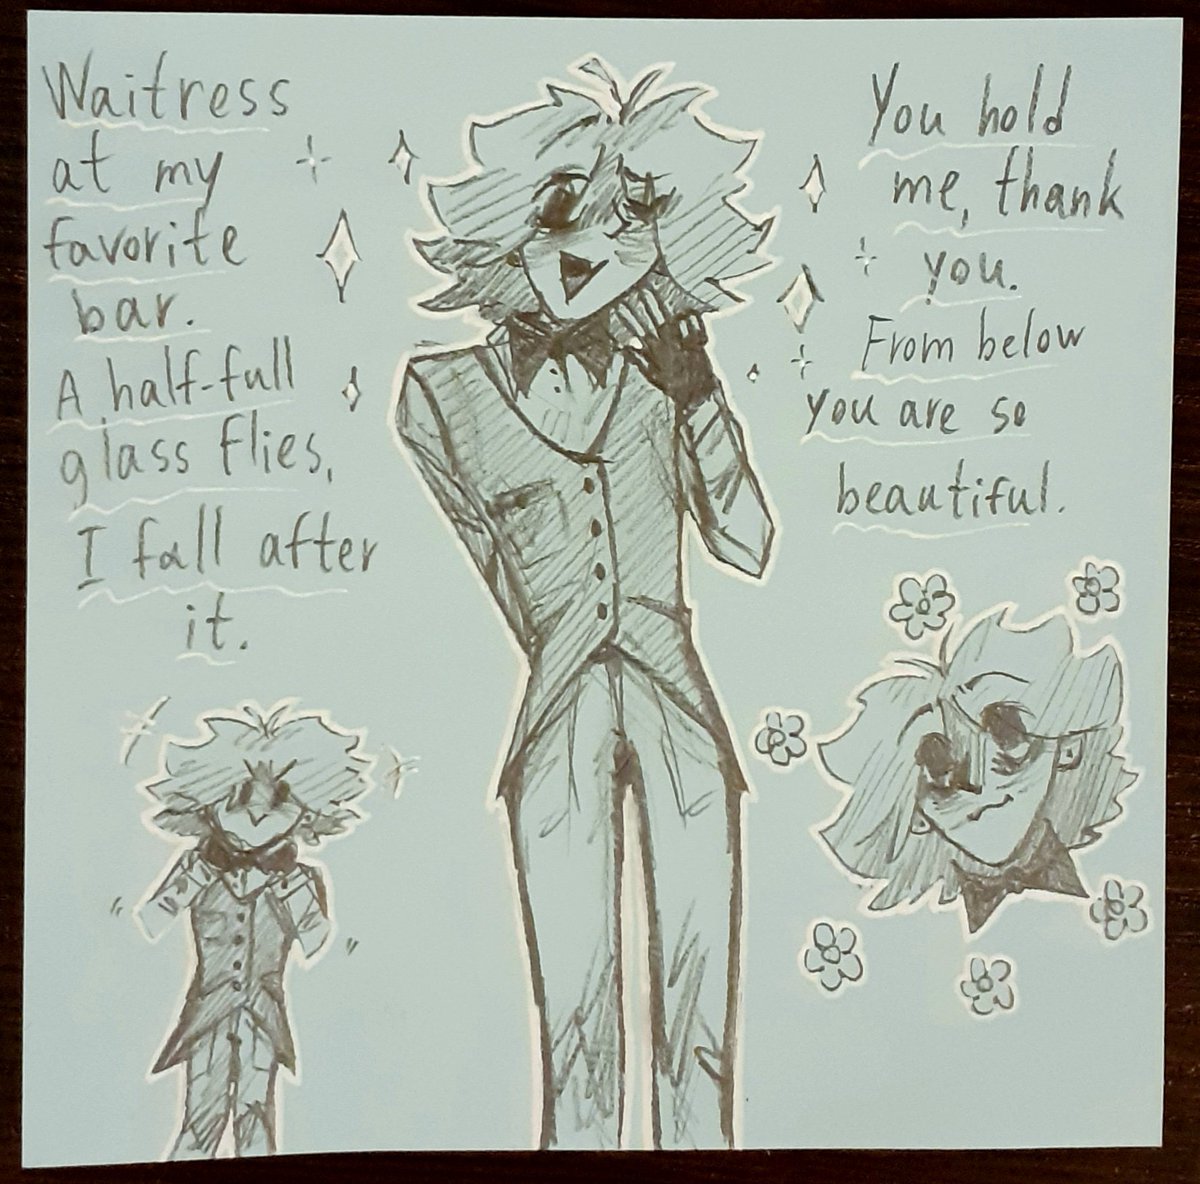 Waitress
at my
favorite
bar.
A half-full
glass flies,
I fall after
it.
You hold
me, thank
you.
From below
you are so
beautiful.